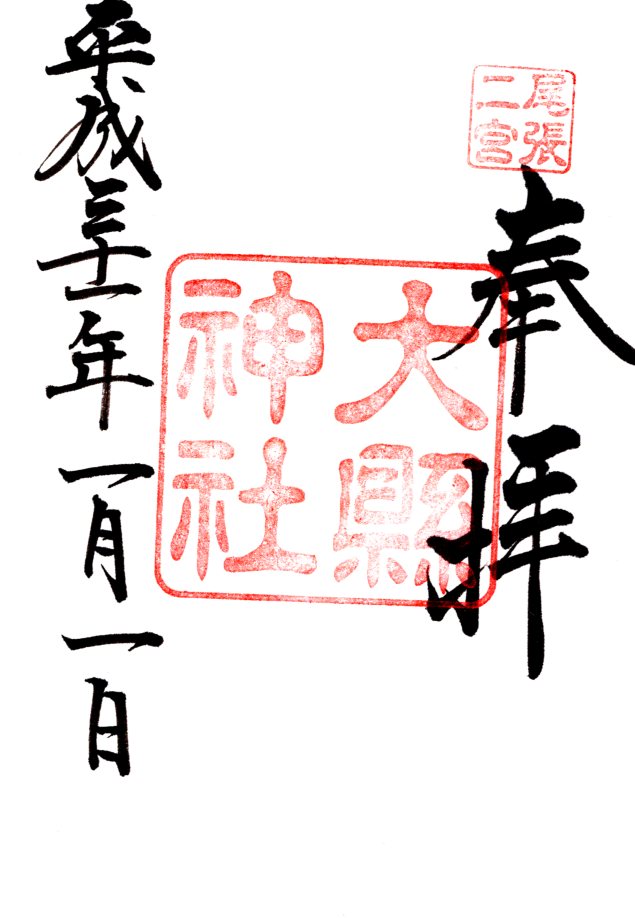 尾張
二宮
奉拝
大縣
神社
平成三十一年一月一日